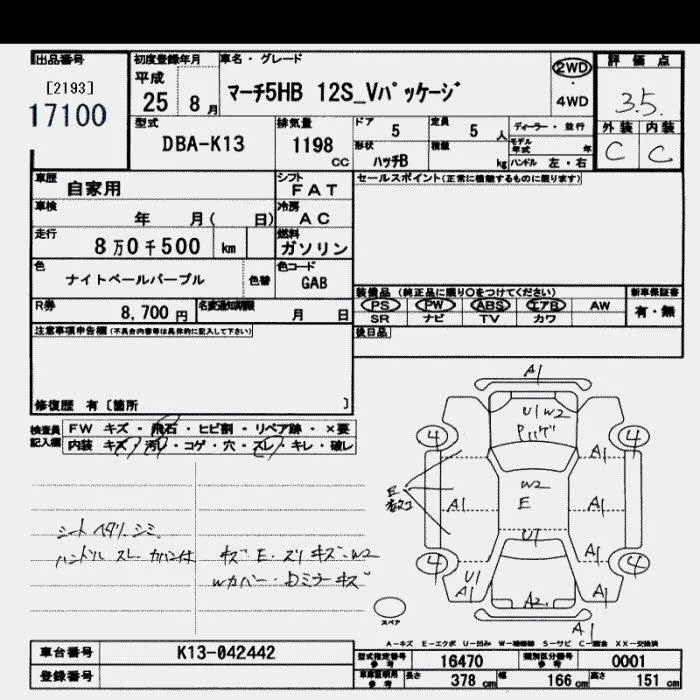 出品番号
[2193]
17100
初度登録年月
平成
25 8月
車名・グレード
マーチ5HB 12S_Vパッケージ
2WD
・
4WD
評価点
3.5
外装 内装
C C
型式
DBA-K13
排気量
1198
CC
ドア
5
定員
5 人
ディーラー・並行
形状
ハッチB
積載
kg
モデル年式 年
ハンドル 左・右
車歴
自家用
シフト
FAT
セールスポイント(正常に機能するものに限ります)
車検
年 月( 日)
冷房
AC
走行
8万0千500 km
燃料
ガソリン
色
ナイトベールパープル
色替
色コード
GAB
装備品 (純正品に限り〇をつけてください)
新車保証書
PS PW ABS エアB AW
有・無
SR ナビ TV カワ
R券
8,700 円
名変通知期限
月 日
後日品
注意事項申告欄(不具合内容等は具体的に記入して下さい)
修復歴 有〔箇所 〕
検査員記入欄
FW キズ・飛石・ヒビ割・リペア跡・×要
内装 キズ・汚レ・コゲ・穴・スレ・キレ・破レ
シートヘタリ.シミ.
ハンドル スレ.カバー付
キズ.E.スリキズ.W2
Wカバー.Dミラーキズ
A1
U1 W2
4 4
A1
W2
E
E
A1 A1
U1
A1
4 4
U1
A1
A1
A2
A1
スペア
A-キズ E-エクボ U-凹み W-補修跡 S-サビ C-腐食 XX-交換済
車台番号
K13-042442
登録番号
型式指定番号
参考
16470
類別区分番号
参考
0001
車庫証明用
参考
長さ 378 cm
幅 166 cm
高さ 151 cm